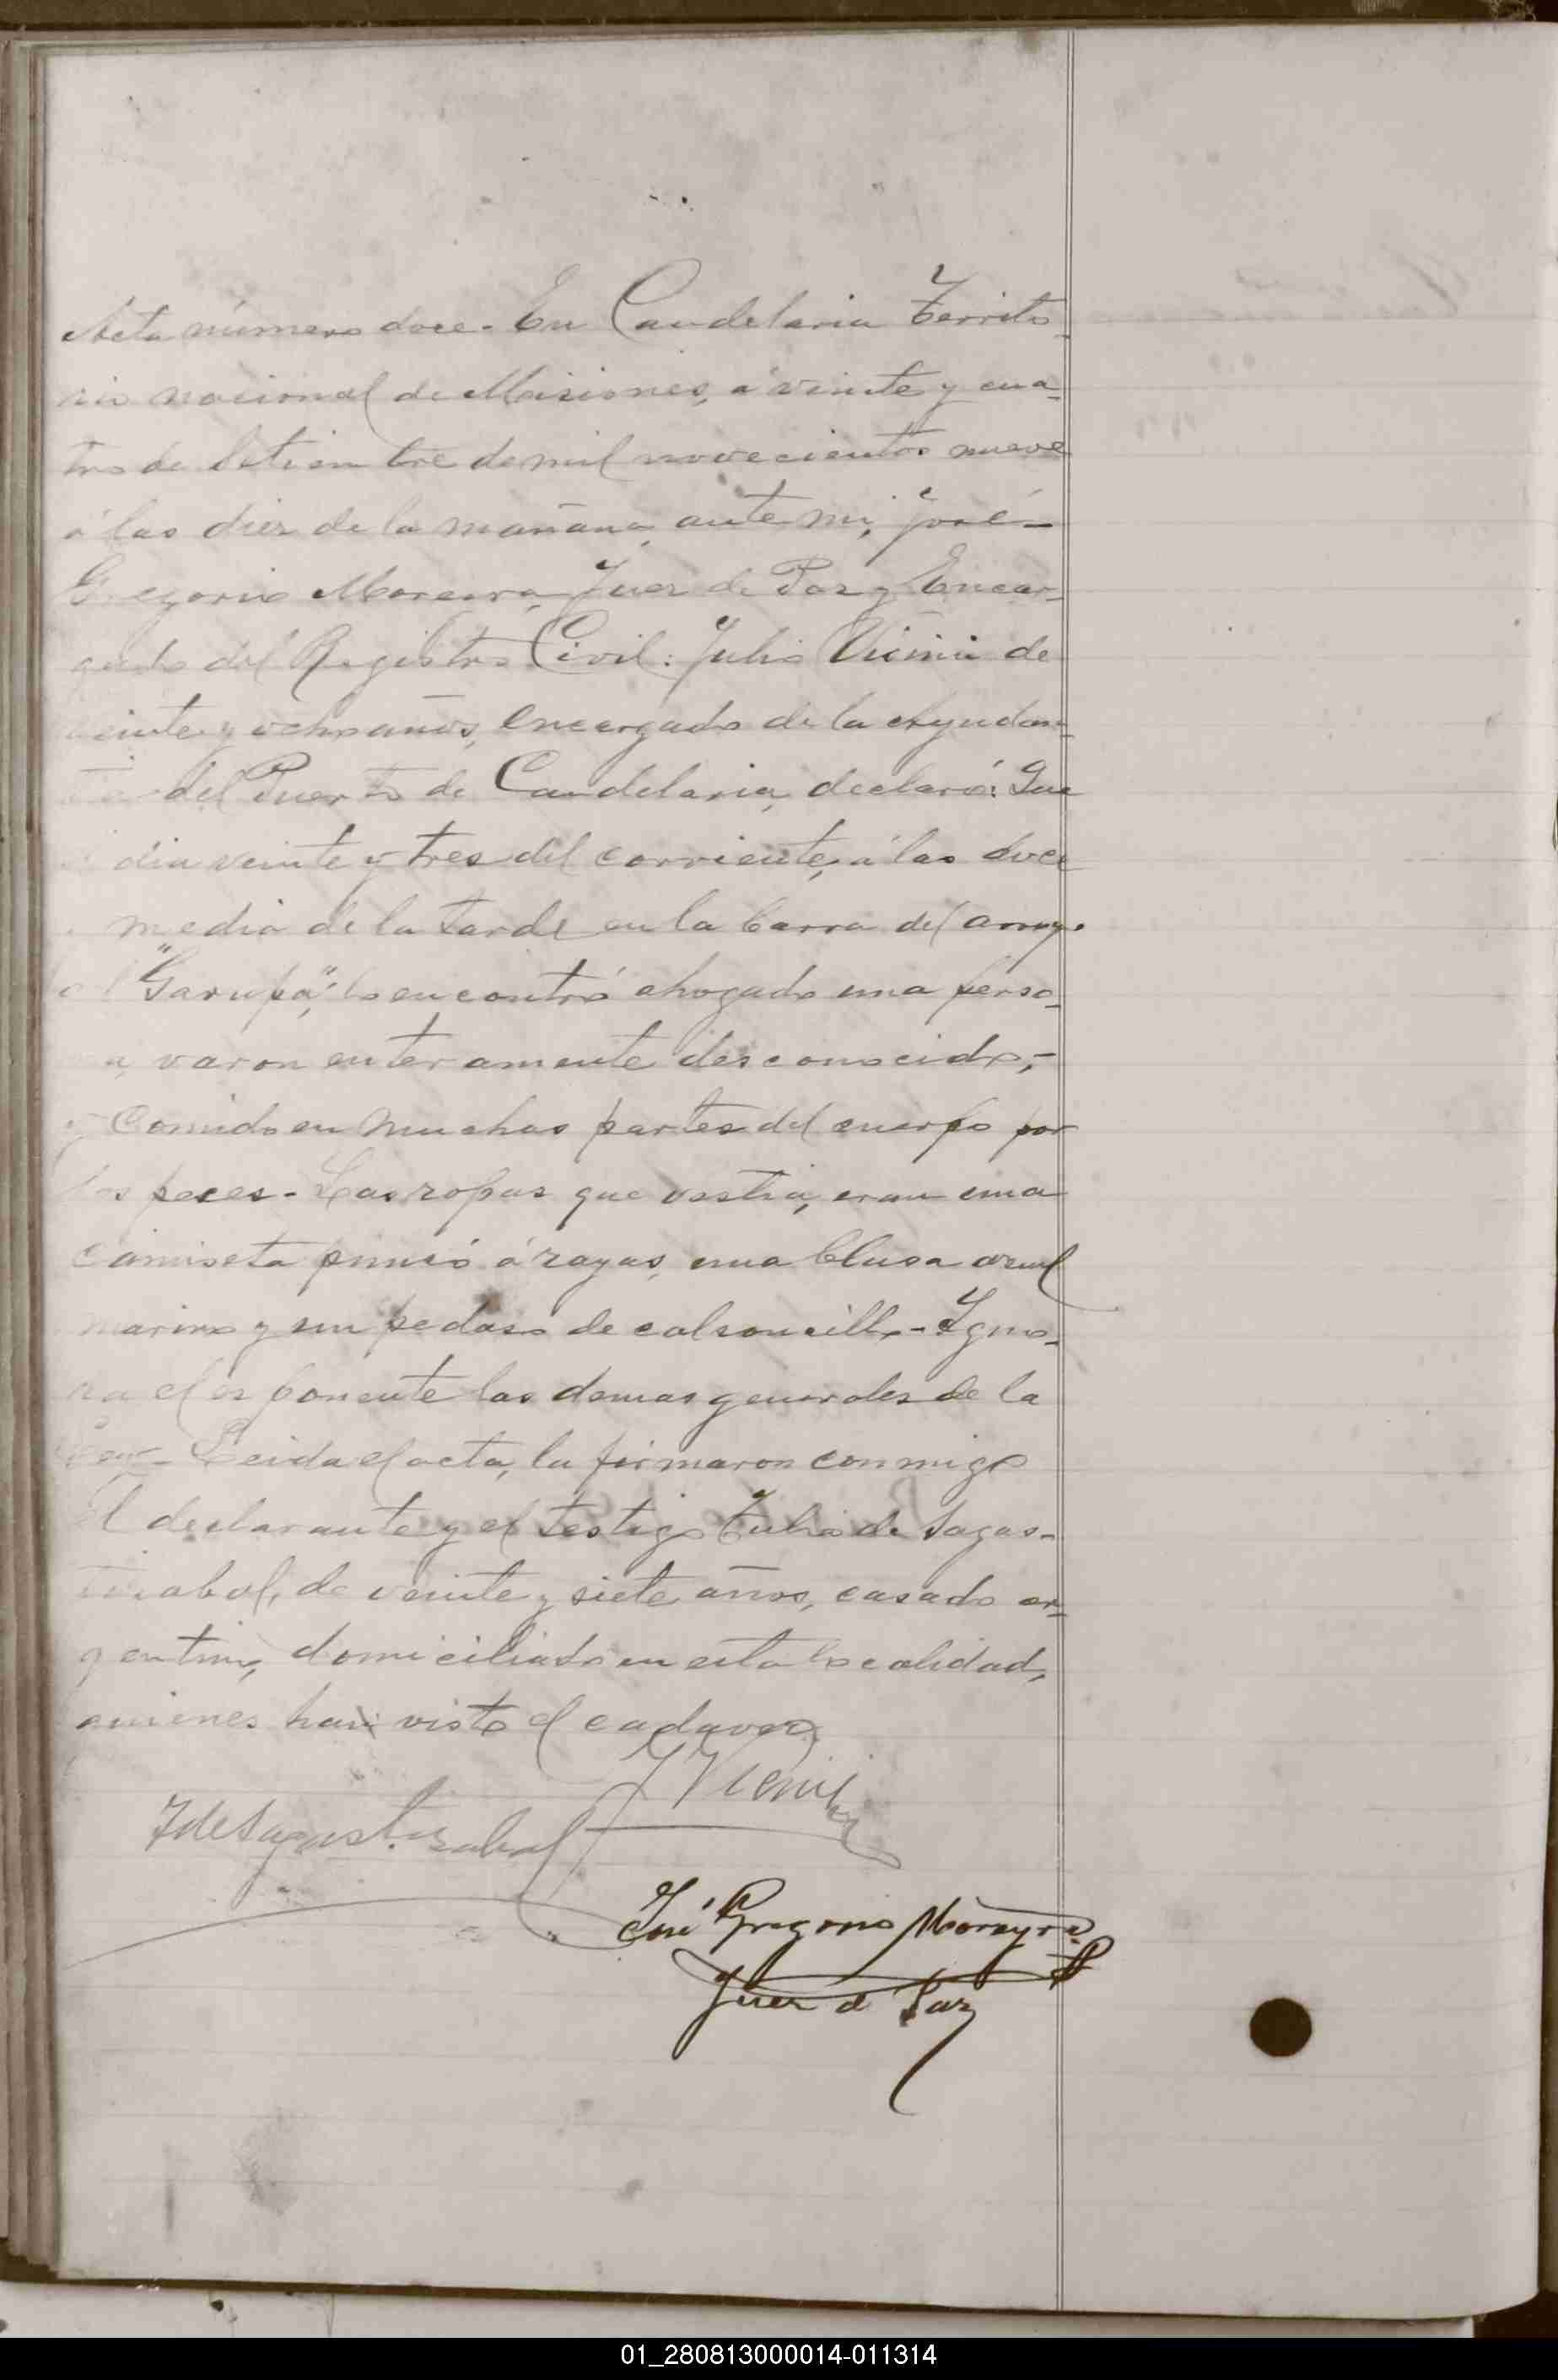 Acta número doce. En Candelaria Territo-
rio nacional de Misiones, á veinte y cua-
tro de Setiembre de mil novecientos nueve
á las diez de la mañana, ante mi, José
Gregorio Moreira, Juez de Paz y Encar-
gado del Registro Civil: Julio
de
veinte y ocho años, encargado de la Ayudan-
tia del Puerto de Candelaria, declaró: Que
el dia veinte y tres del corriente, á las doce
y media de la tarde en la barra del arroyo
"Garupá", lo encontró ahogado una perso-
na, varon enteramente desconocido,-
y comido en muchas partes del cuerpo por
los peces- Las ropas que vestia, eran una
camiseta punsó á rayas, una blusa azul
marino y un pedaso de calsoncillo- Igno-
ra el esponente las demas generales de la
Ley- Leida el acta, la firmaron conmigo
El declarante y el testigo Julio de Sagas-
tizabal, de veinte y siete años, casado ar-
gentino, domiciliado en esta localidad,
quienes han visto el cadaver
J de Sagastizabal
José Gregorio Morayra
Juez d Paz
01_280813000014-011314